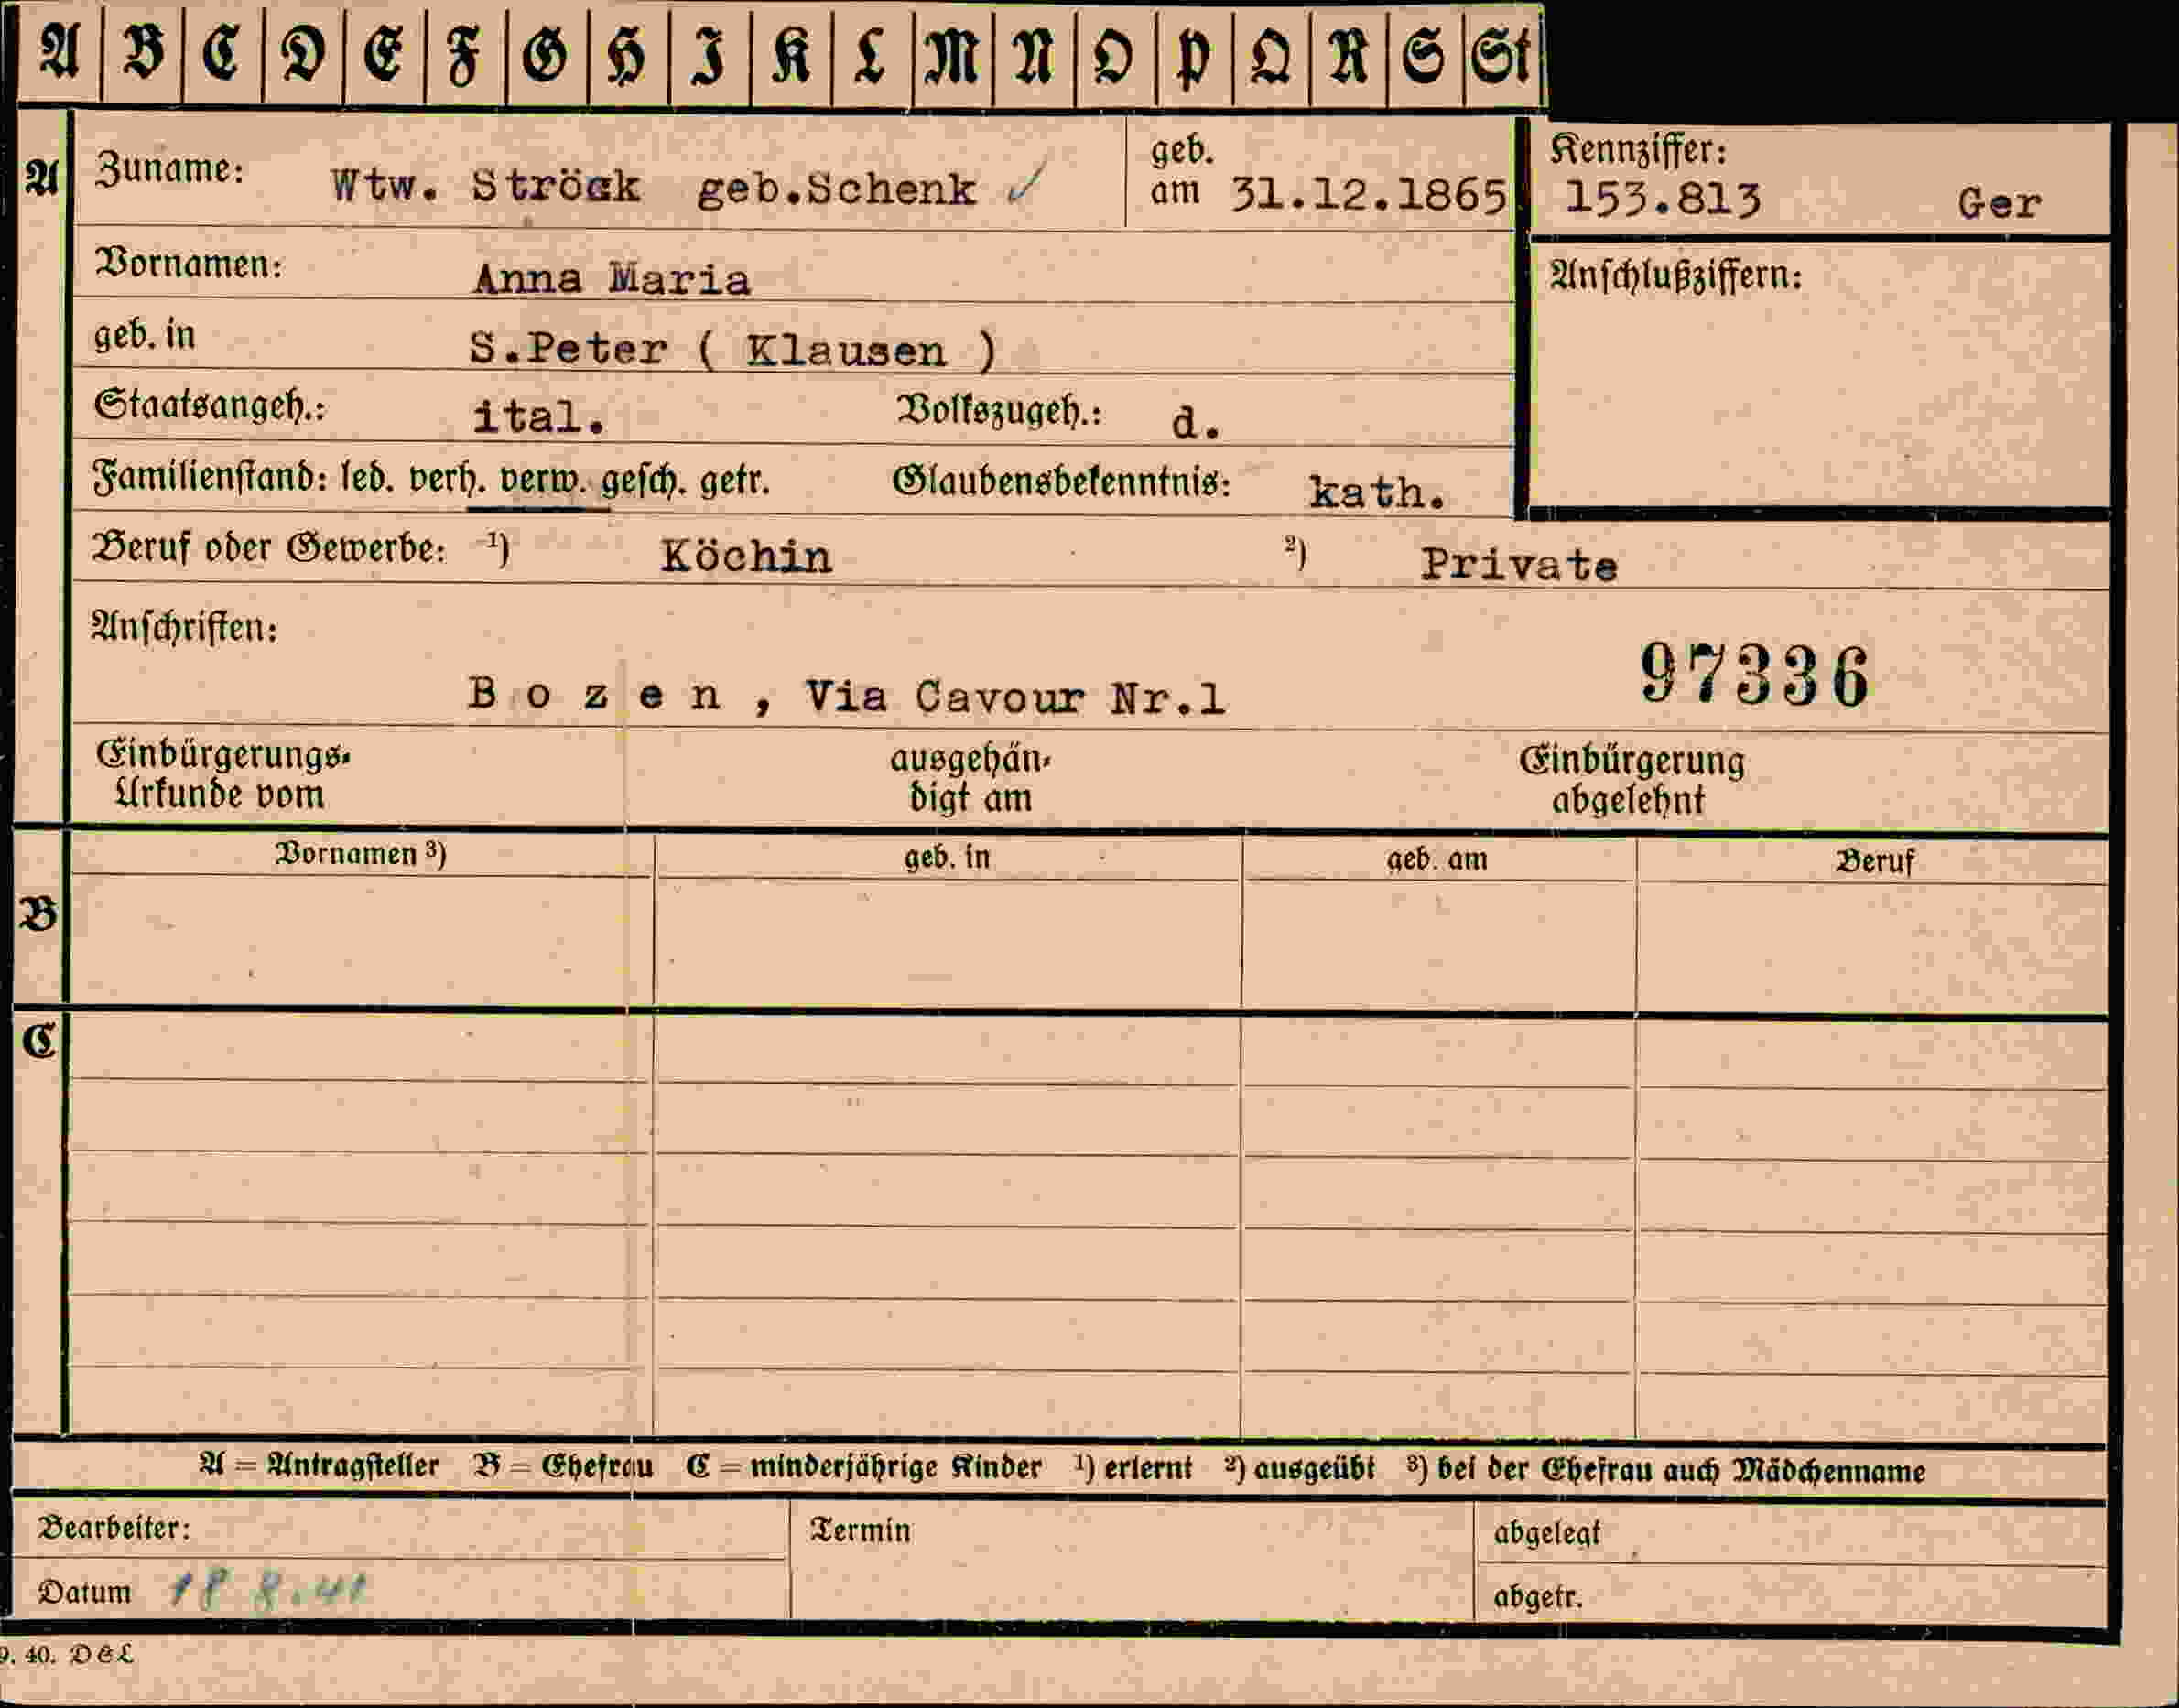 A B C D E F G H I K L M N O P Q R S St
A Zuname: Wtw. Ströck geb.Schenk ✓ geb. am 31.12.1865 Kennziffer: 153.813 Ger
Vornamen: Anna Maria Anschlußziffern:
geb. in S.Peter ( Klausen )
Staatsangeh.: ital. Volkszugeh.: d.
Familienstand: led. verh. verw. gesch. getr. Glaubensbekenntnis: kath.
Beruf oder Gewerbe: ¹) Köchin ²) Private
Anschriften:
B o z e n , Via Cavour Nr.1 97336
Einbürgerungs- ausgehän- Einbürgerung
Urkunde vom digt am abgelehnt
Vornamen ³) geb. in geb. am Beruf
B
C
A = Antragsteller B = Ehefrau C = minderjährige Kinder ¹) erlernt ²) ausgeübt ³) bei der Ehefrau auch Mädchenname
Bearbeiter: Termin abgelegt
Datum 18 8.41 abgetr.
9. 40. D&L